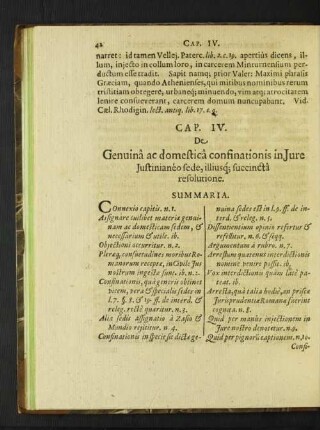 42 CAP. IV.
narret: id tamen Vellej. Paterc. lib. 2. c. 19. apertiùs dicens, il-
lum, injecto in collum loro, in carcerem Minturnensium per-
ductum esse tradit. Sapit namq; prior Valer: Maximi phrasis
Græciam, quando Athenienses, qui mitibus nominibus rerum
tristitiam obtegere, urbaneq; minuendo, vim atq; atrocitatem
lenire consueverant, carcerem domum nuncupabant. Vid.
Cæl. Rhodigin. lect. antiq. lib. 17. c. 8.
CAP. IV.
De
Genuinâ ac domesticâ confinationis in Jure
Justinianêo sede, illiusq; succinctâ
resolutione.
SUMMARIA.
Connexio capitis. n. 1.
Assignare cuilibet materiæ genui-
nam ac domesticam sedem, &
necessarium & utile. ib.
Objectioni occurritur. n. 2.
Pleraq; consuetudines moribus Ro-
manorum receptæ, in Civile Jus
nostrum ingestæ sunt. ib. n. 2.
Confinationis, qua generis obtinet
vicem, vera & specialis sedes in
l. 7. §. 8. & 19. ff. de interd. &
releg. rectè quæritur. n. 3.
Alia sedis assignatio à Zasio &
Mendis rejicitur. n. 4.
Confinationis in specie sic dictæ ge-
nuina sedes est in l. 9. ff. de in-
terd. & releg. n. 5.
Dissentientium opinio refertur &
refellitur. n. 6. & seqq.
Argumentum à rubro. n. 7.
Arrestum quatenus interdictionis
nomine venire possit. ib.
Vox interdictionis quàm latè pa-
teat. ib.
Arresta, quâ talia hodiè, an priscæ
Jurisprudentiæ Romanæ fuerint
cognita. n. 8.
Quid per manûs injectionem in
Jure nostro denotetur. n. 9.
Quid per pignoris captionem. n. 10.
Confi-